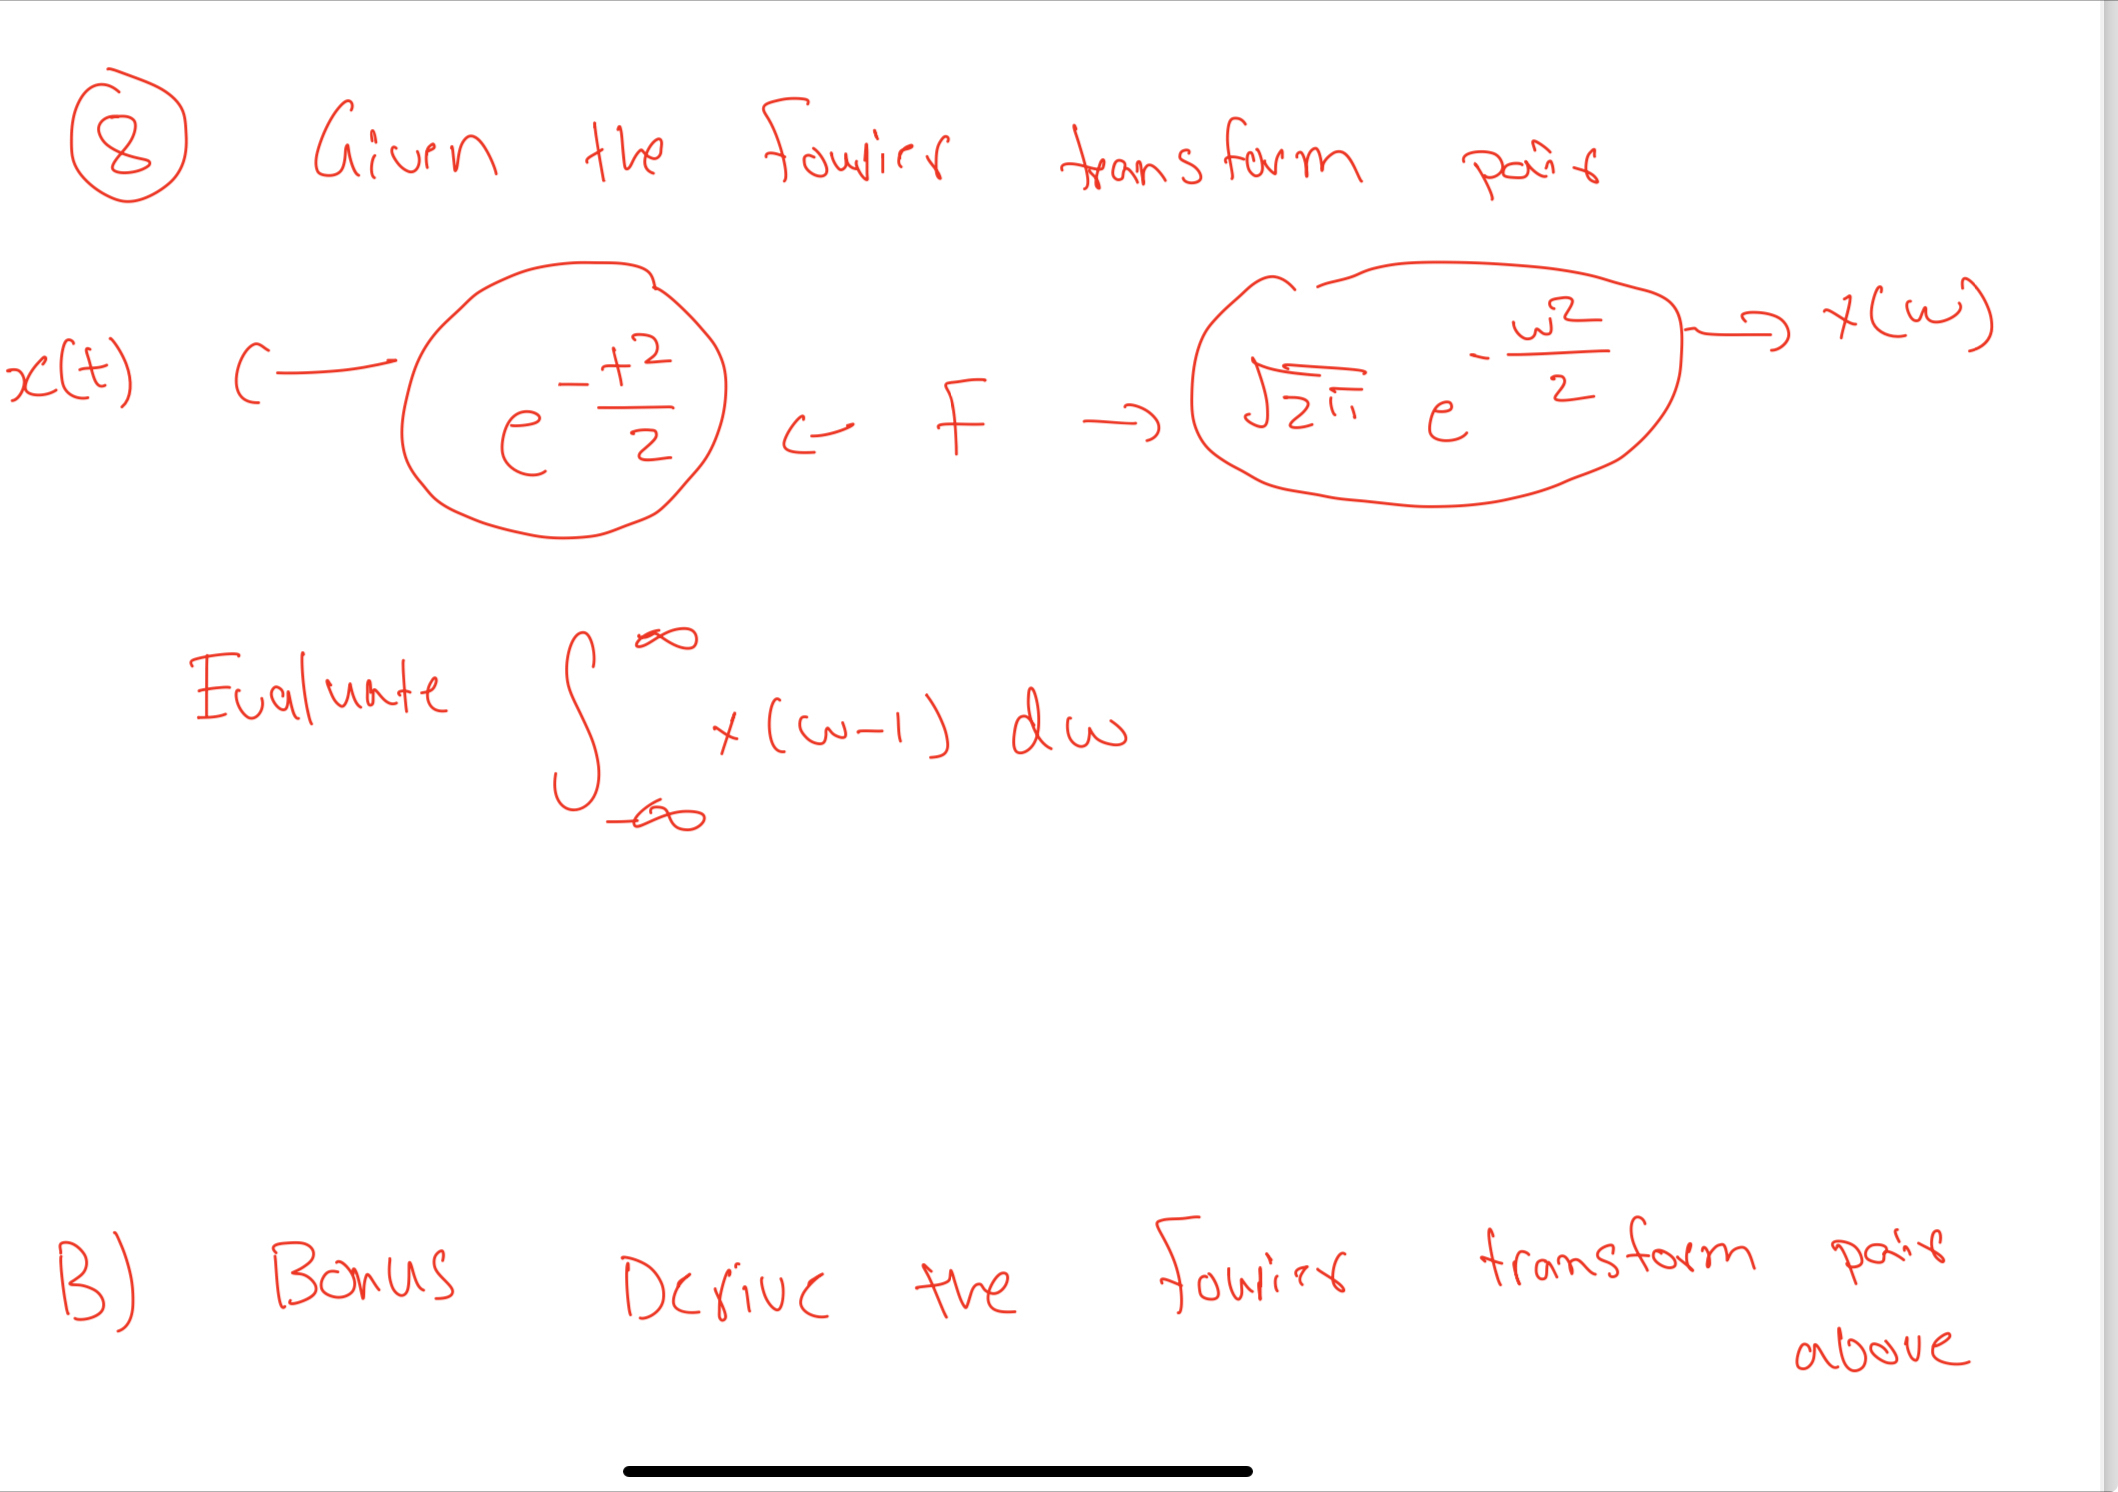 8 Given the Fourier transform pair
x(t) ← e^{-t^2/2} ← F → √2π e^{-w^2/2} → X(w)
Evaluate ∫_{-∞}^{∞} X(w-1) dw
B) Bonus Derive the Fourier transform pair
above